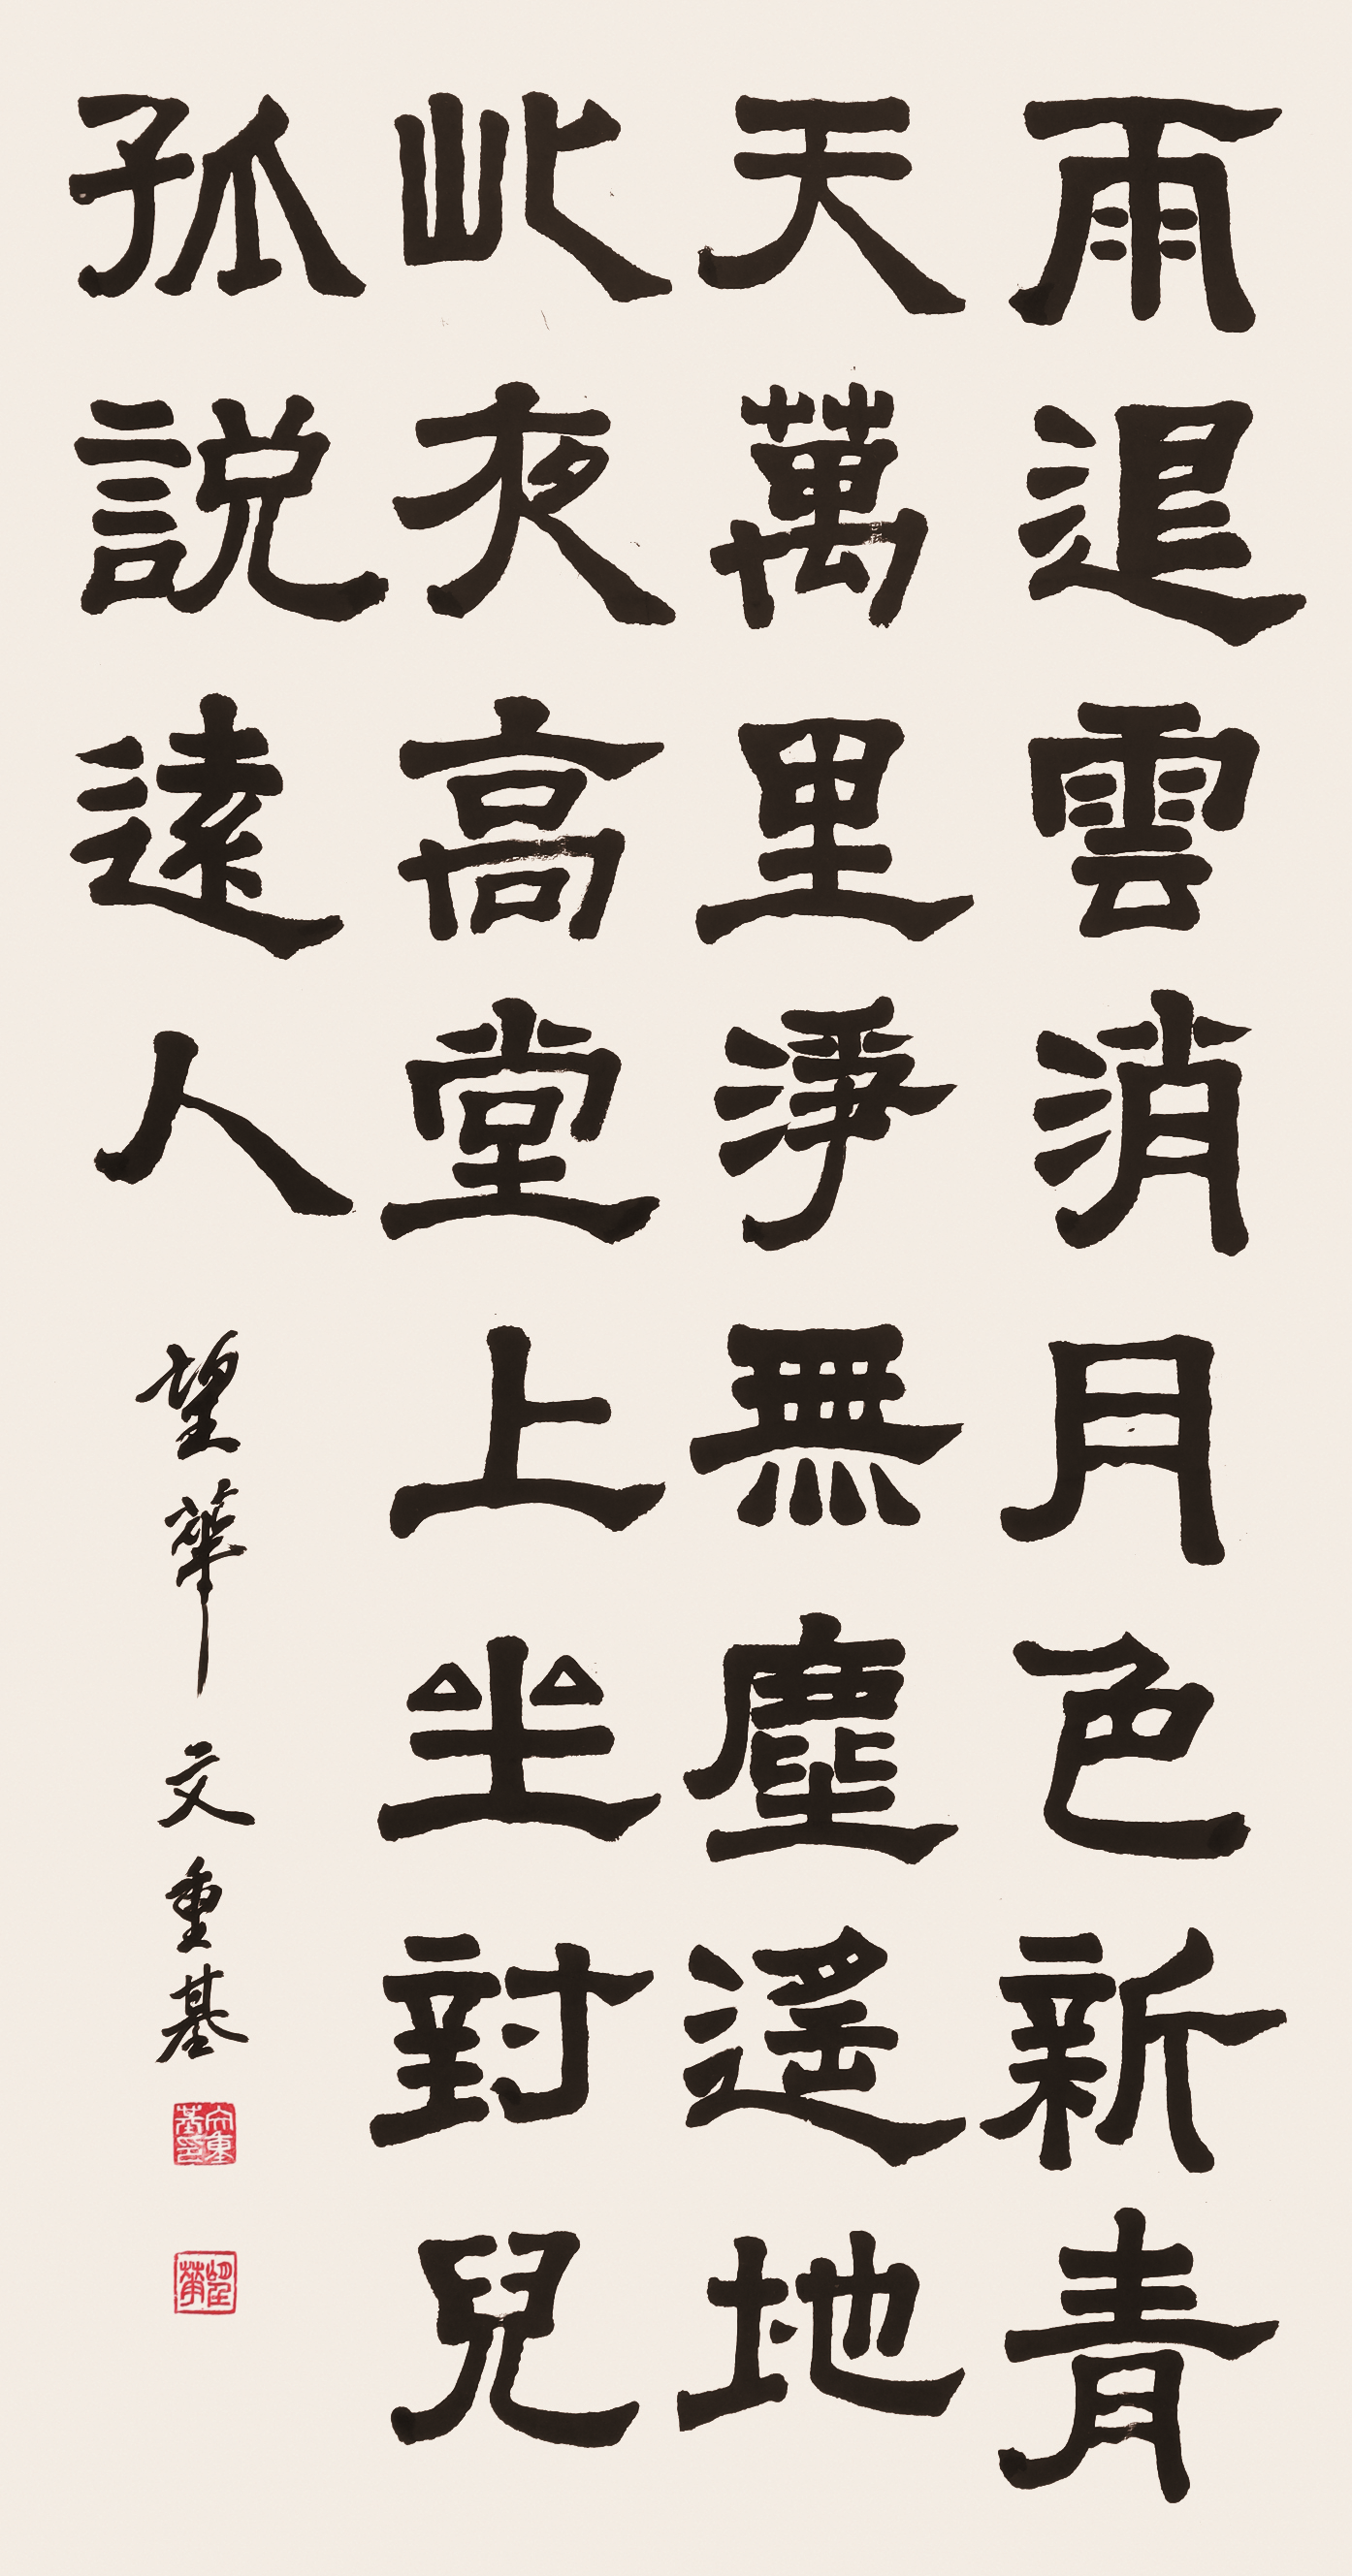 雨退雲消月色新青
天萬里淨無塵遥地
此夜高堂上坐對兒
孤説遠人
望華 文重基
文重基印
望華